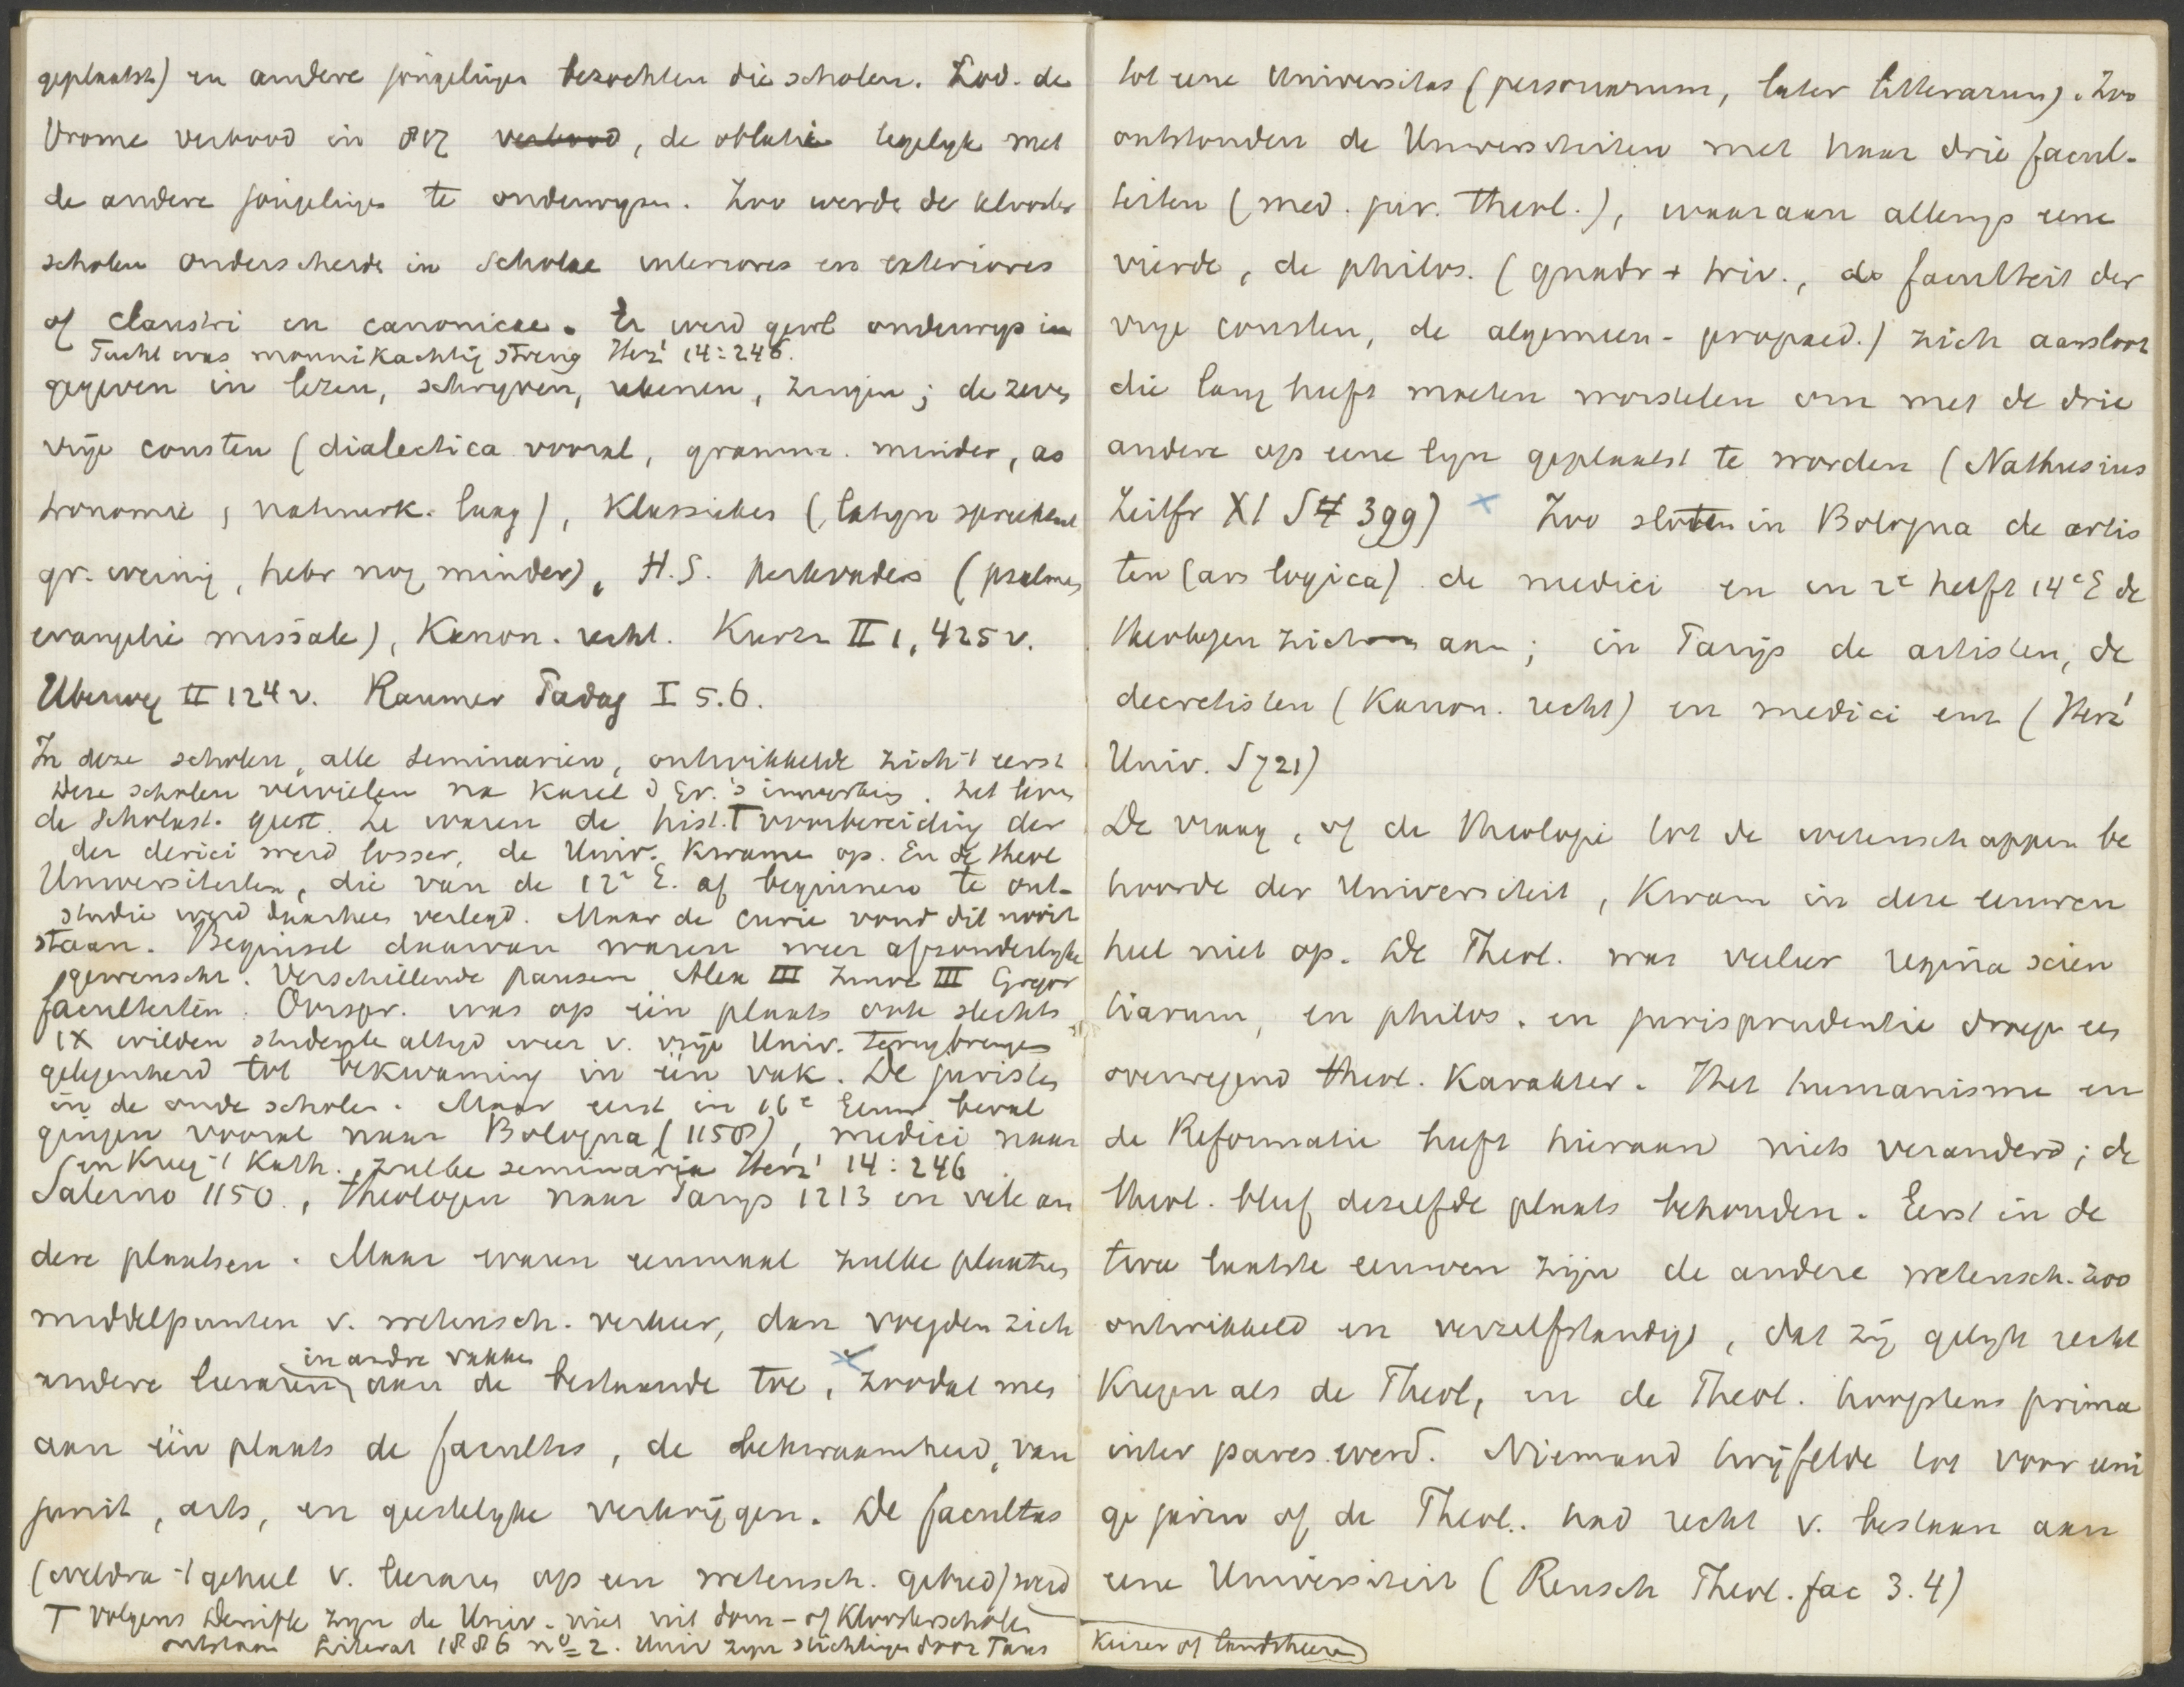 geplaatst) en andere jongelingen bezochten die scholen. Lod. de
Vrome verbood in 817 verbood, de oblati tegelyk met
de andere jongelingen te onderwyzen. Zoo werde de klooster
scholen onderscheide in Scholae interiores en exteriores
of claustri en canonicae. Er werd gewl onderwys in
Tucht was monnikachtig streng Herz¹ 14:246.
gegeven in lezen, schryven, rekenen, zingen; de zeven
vrije consten (dialectica vooral, gramm. minder, as
tronomie, natuurk. laag), Klassieken (latyn sprekend
gr. weinig, hebr nog minder), H.S. kerkvaders (psalmen
evangelie missale), Kanon. recht. Kurtz II 1, 425 v.
Uberweg II 124 v. Raumer Padag I 5.6.
In deze scholen, alle seminarien, ontwikkelde zich 't eerst
Deze scholen vervielen na Karel d Gr.'s inwerking. Het leven
de scholast. geest. Ze waren de hist. T voorbereiding der
der clerici werd losser, de Univ. kwame op. En de theol
Universiteiten, die van de 12e E. af beginnen te ont-
studie werd daarheen verlegd. Maar de curie vond dit nooit
staan. Beginsel daarvan waren meer afzonderlyke
gewenscht. Verschillende pausen Alex III Innoc III Gregor
faculteiten. Oorspr. was op één plaats ook slechts
IX wilden studente altyd weer v. vrije Univ. terugbrengen
gelegenheid tot bekwaming in één vak. De juristen
in de oude scholen. Maar eerst in 16e Eeuw beval
gingen vooral naar Bologna (1158), medici naar
Salerno 1150., theologen naar Parys 1213 en vele an
dere plaatsen. Maar waren eenmaal zulke plaatsen
middelpunten v. wetensch. verkeer, dan voegden zich
in andre vakken
andere leeraren aan de bestaande toe, zoodat men
aan één plaats de facultas, de bekwaamheid, van
jurist, arts, en geestelyke verkrijgen. De facultas
(weldra 't geheel v. leeraren op een wetensch. gebied) werd
T Volgens Denifle zyn de Univ. niet uit dom- of Kloosterscholen
ontstaan Literat 1886 no 2. Univ zyn stichtingen door Paus
tot eene Universitas (personarum, later litterarum). Zoo
ontstonden de Universiteiten met haar drie facul-
teiten (med. jur. theol.), waaraan allengs eene
vierde, de philos. (quadr + triv., de faculteit der
vrye consten, de algemeen-propaed.) zich aansloot
die lang heeft moeten worstelen om met de drie
andere op eene lyn geplaatst te worden (Nathusius
Zeitfr XI S 399) x Zoo sloten in Bologna de artis
ten (ars logica) de medici en in 2e helft 14e E de
theologen zich aan; in Parijs de artisten, de
decretisten (Kanon. recht) en medici enz (Herz¹
Univ. S 721)
De vraag, of de theologie tot de wetenschappen be
hoorde der Universiteit, kwam in deze eeuwen
heel niet op. De Theol. was veeleer regina scien
tiarum, en philos. en jurisprudentie droegen een
overwegend theol. karakter. Het humanisme en
de Reformatie heeft hieraan niets veranderd; de
theol. bleef dezelfde plaats behouden. Eerst in de
twee laatste eeuwen zijn de andere wetensch. zoo
ontwikkeld en verzelfstandigd, dat zij gelyk recht
kregen als de Theol, en de Theol. hoogstens prima
inter pares werd. Niemand twijfelde tot voor eeni
ge jaren of de Theol. had recht v. bestaan aan
eene Universiteit (Reusch Theol. fac 3.4)
Keizer of landsheeren